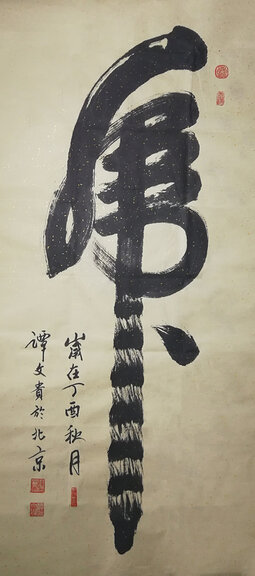 虎
歲在丁酉秋月
譚文貴於北京